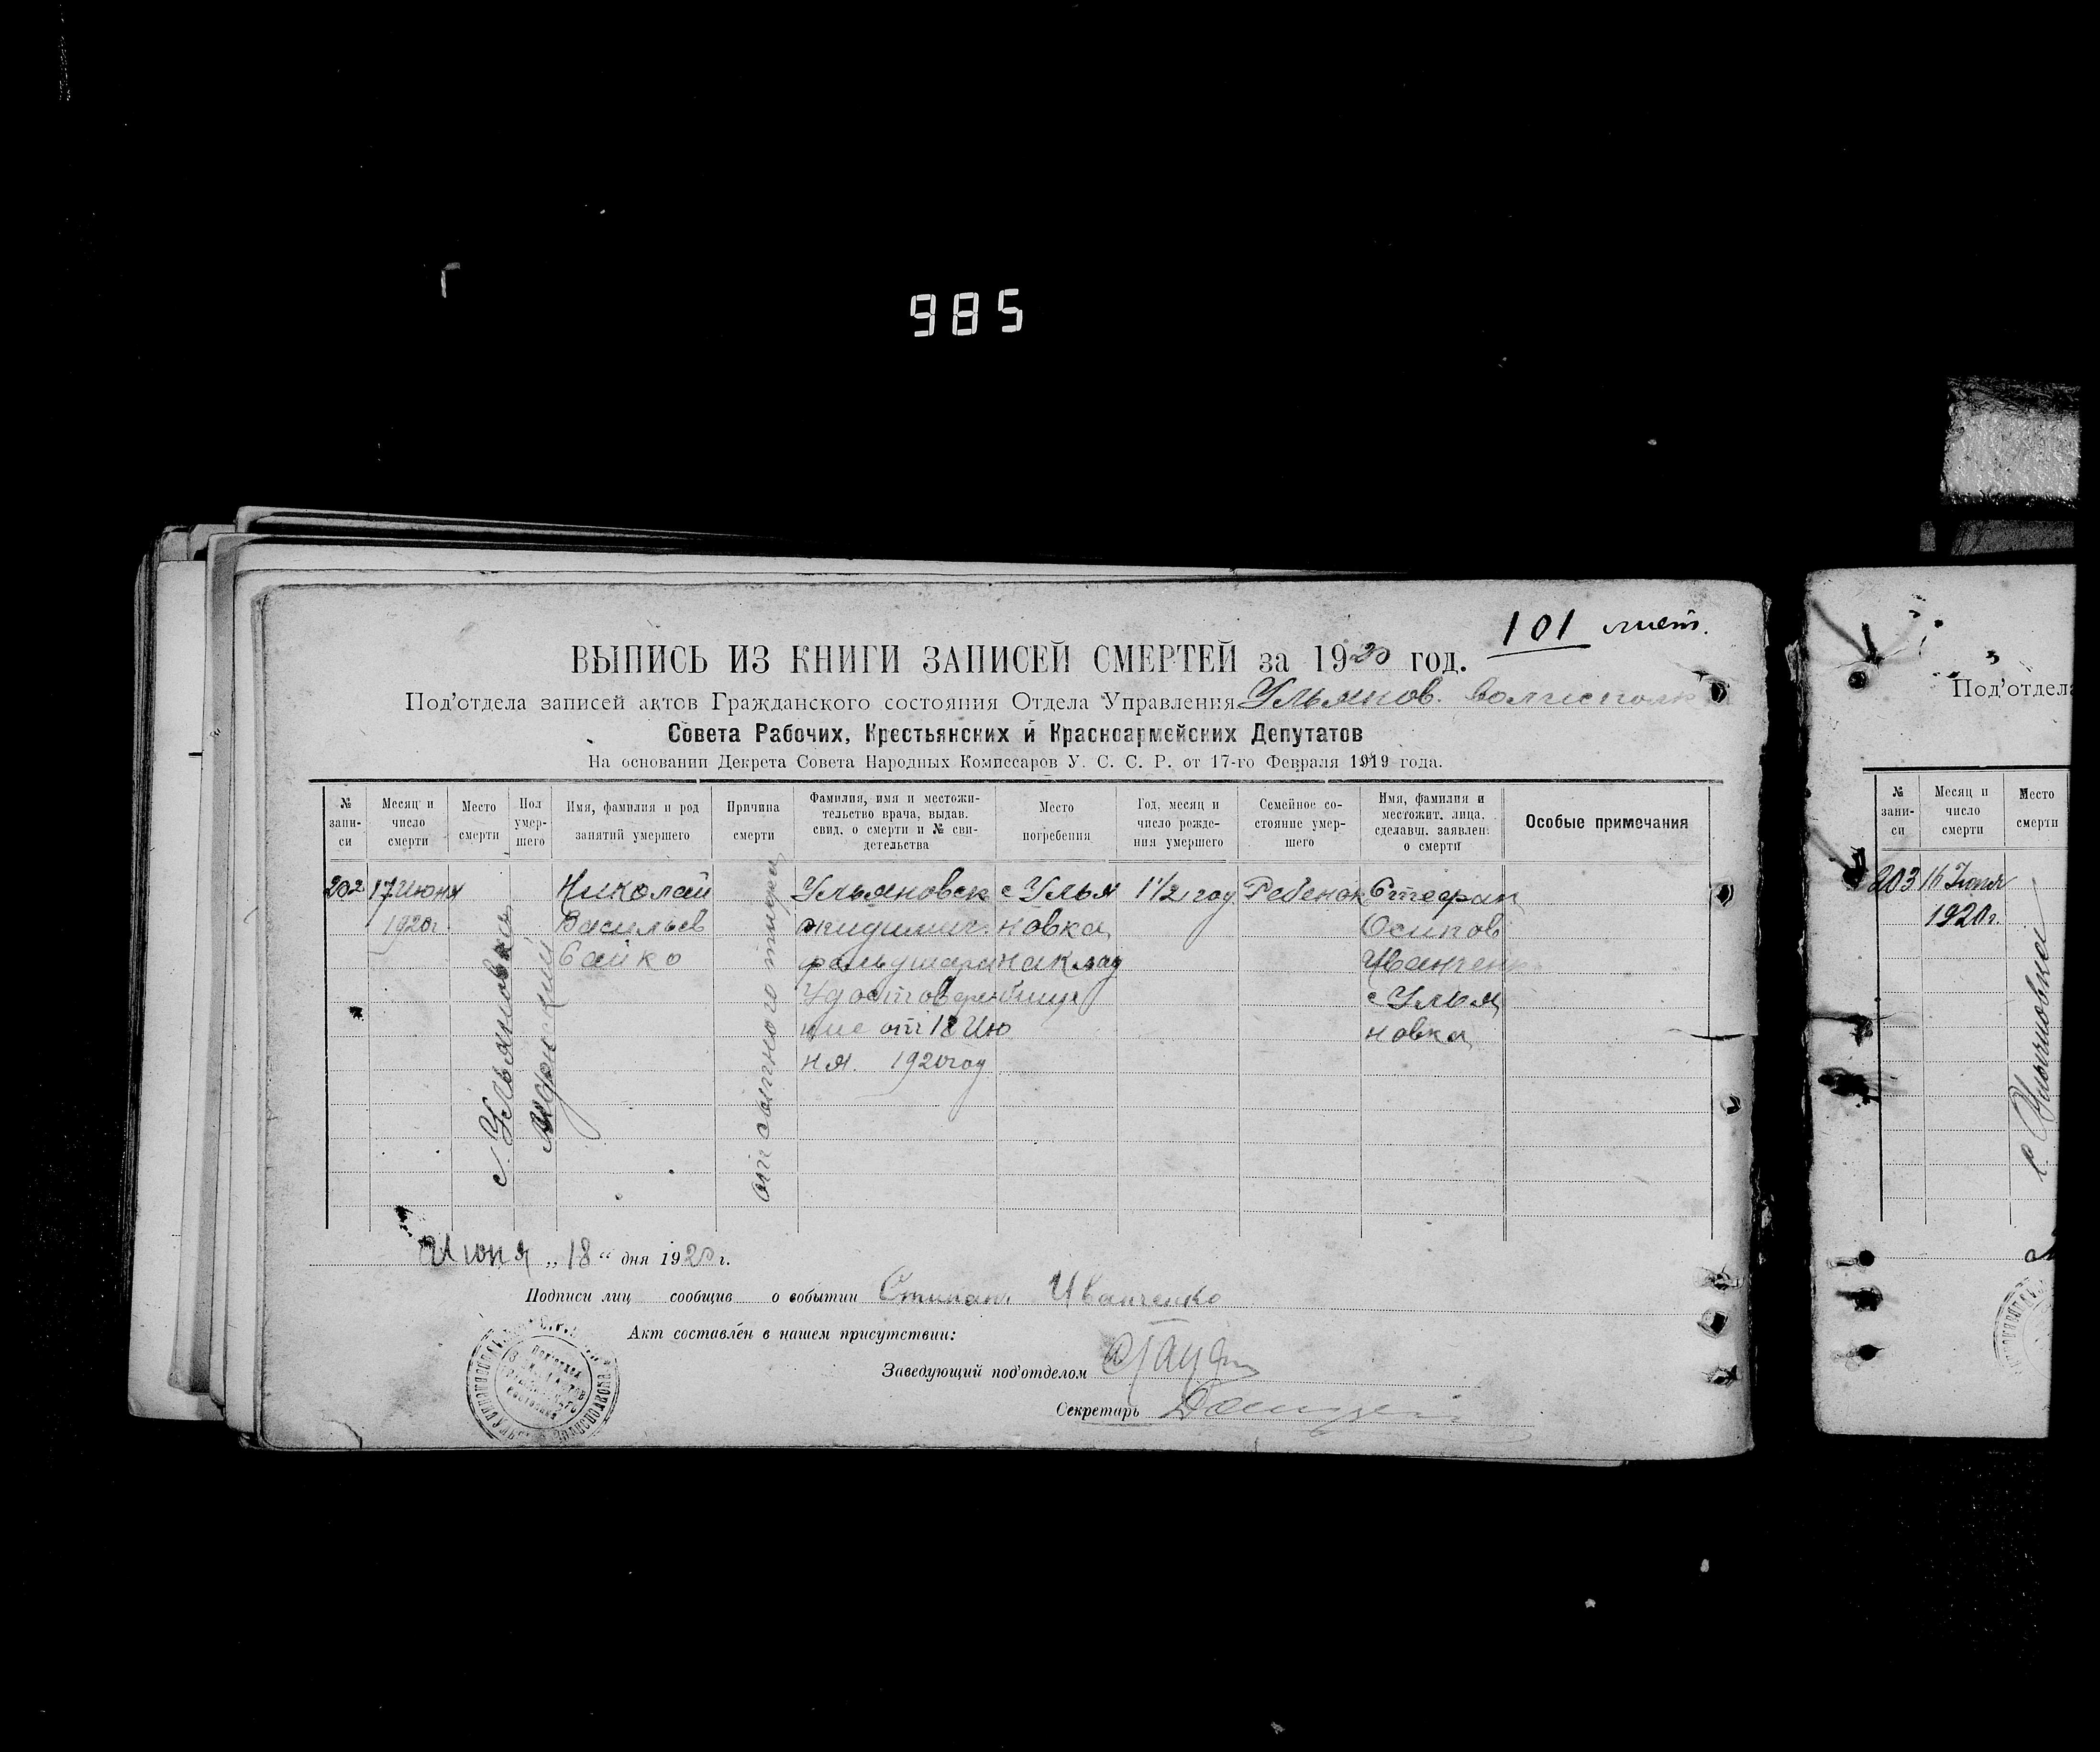 985
101 лист.
ВЫПИСЬ ИЗ КНИГИ ЗАПИСЕЙ СМЕРТЕЙ за 1920 год.
Под'отдела записей актов Гражданского состояния Отдела Управления Ульянов.
Совета Рабочих, Крестьянских и Красноармейских Депутатов
На основании Декрета Совета Народных Комиссаров У. С. С. Р. от 17-го Февраля 1919 года.
№ запи-
си
Месяц и
число
смерти
Место
смерти
Пол
умер-
шего
Имя, фамилия и род
занятий умершего
Причина
смерти
Фамилия, имя и местожи-
тельство врача, выдав.
свид. о смерти и № сви-
детельства
Место
погребения
Год, месяц и
число рожде-
ния умершего
Семейное со-
стояние умер-
шего
Имя, фамилия и
местожит. лица,
сделавш. заявлен.
о смерти
Особые примечания
202
17 Июня
1920г.
с. Ульяновка
мужский
Николай
Васильев
Сайко
от сыпного тифа
Ульяновск
фельдшера
Удостовере
ние от 18 Ию
ня. 1920 год
с Улья
новка
на клад
бище
1 1/2 год
Ребенок
Стефан
Осипов
Иванченк
с Улья
новка
Июня „18“ дня 1920 г.
Подписи лиц сообщив о событии Стипан Иванченко
Акт составлен в нашем присутствии:
Заведующий под'отделом
Секретарь
Под'отдела
№ запи-
си
Месяц и
число
смерти
Место
смерти
203
16 Июня
1920г.
с. Ульяновка